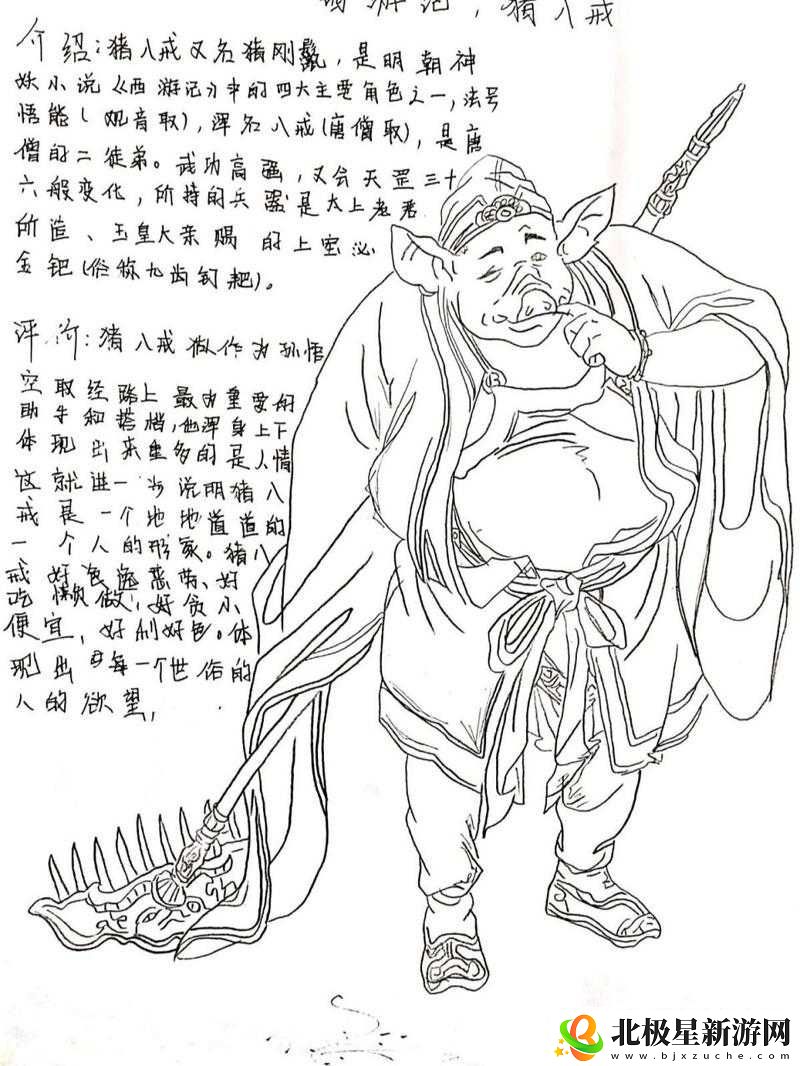 西游记，猪八戒
介绍：猪八戒又名猪刚鬣，是明朝神
妖小说《西游记》中的四大主要角色之一，法号
悟能（观音取），浑名八戒（唐僧取），是唐
僧的二徒弟。武功高强，又会天罡三十
六般变化，所持的兵器是太上老君
所造、玉皇大帝赐的上宝沁
金钯（俗称九齿钉耙）。
评价：猪八戒做作为孙悟
空取经路上最为重要的
助手和搭档，他浑身上下
体现出来更多的是人情
这就进一步说明猪八
戒是一个地地道道的
一个人的形象。猪八
戒好逸恶劳、好
吃懒做，好贪小
便宜，好利好色。体
现出每一个世俗的
人的欲望，
北极星新游网
www.bjxzuche.com